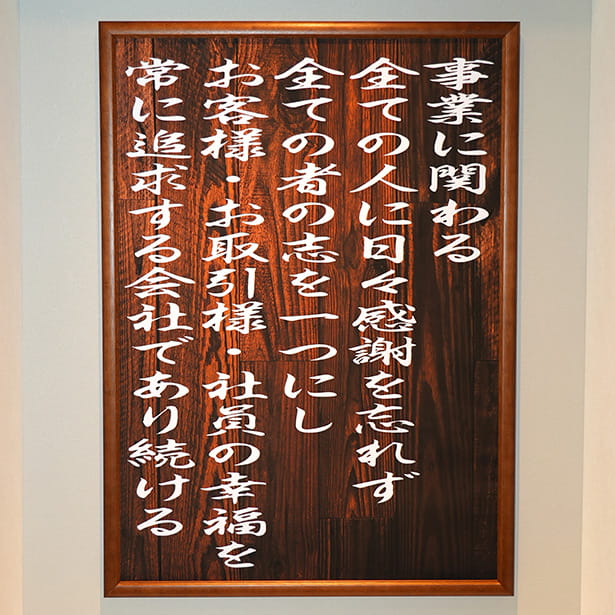 事業に関わる
全ての人に日々感謝を忘れず
全ての者の志を一つにし
お客様・お取引様・社員の幸福を
常に追求する会社であり続ける